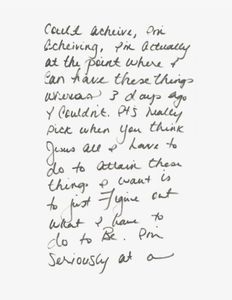 Could acheive, I'm
acheiving, I'm actually
at the point where I
can have these things
whereas 3 days ago
I couldn't. It's really
sick when you think
Jesus all I have to
do to attain these
things I want is
to just figure out
what I have to
do to Be. I'm
seriously at a